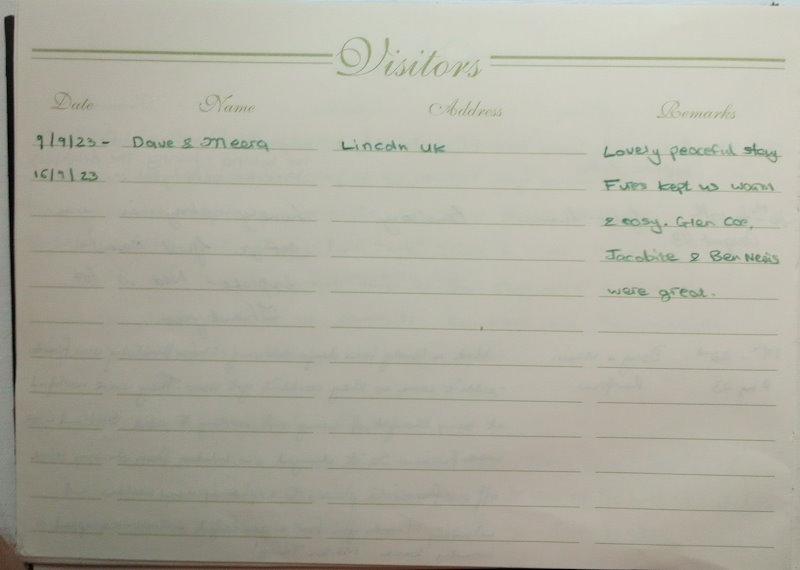 Visitors
Date Name Address Remarks
9/9/23 - Dave & Meera Lincoln UK Lovely peaceful stay
16/9/23 Fires kept us warm
& cosy. Glen Coe,
Jacobite & Ben Nevis
were great.